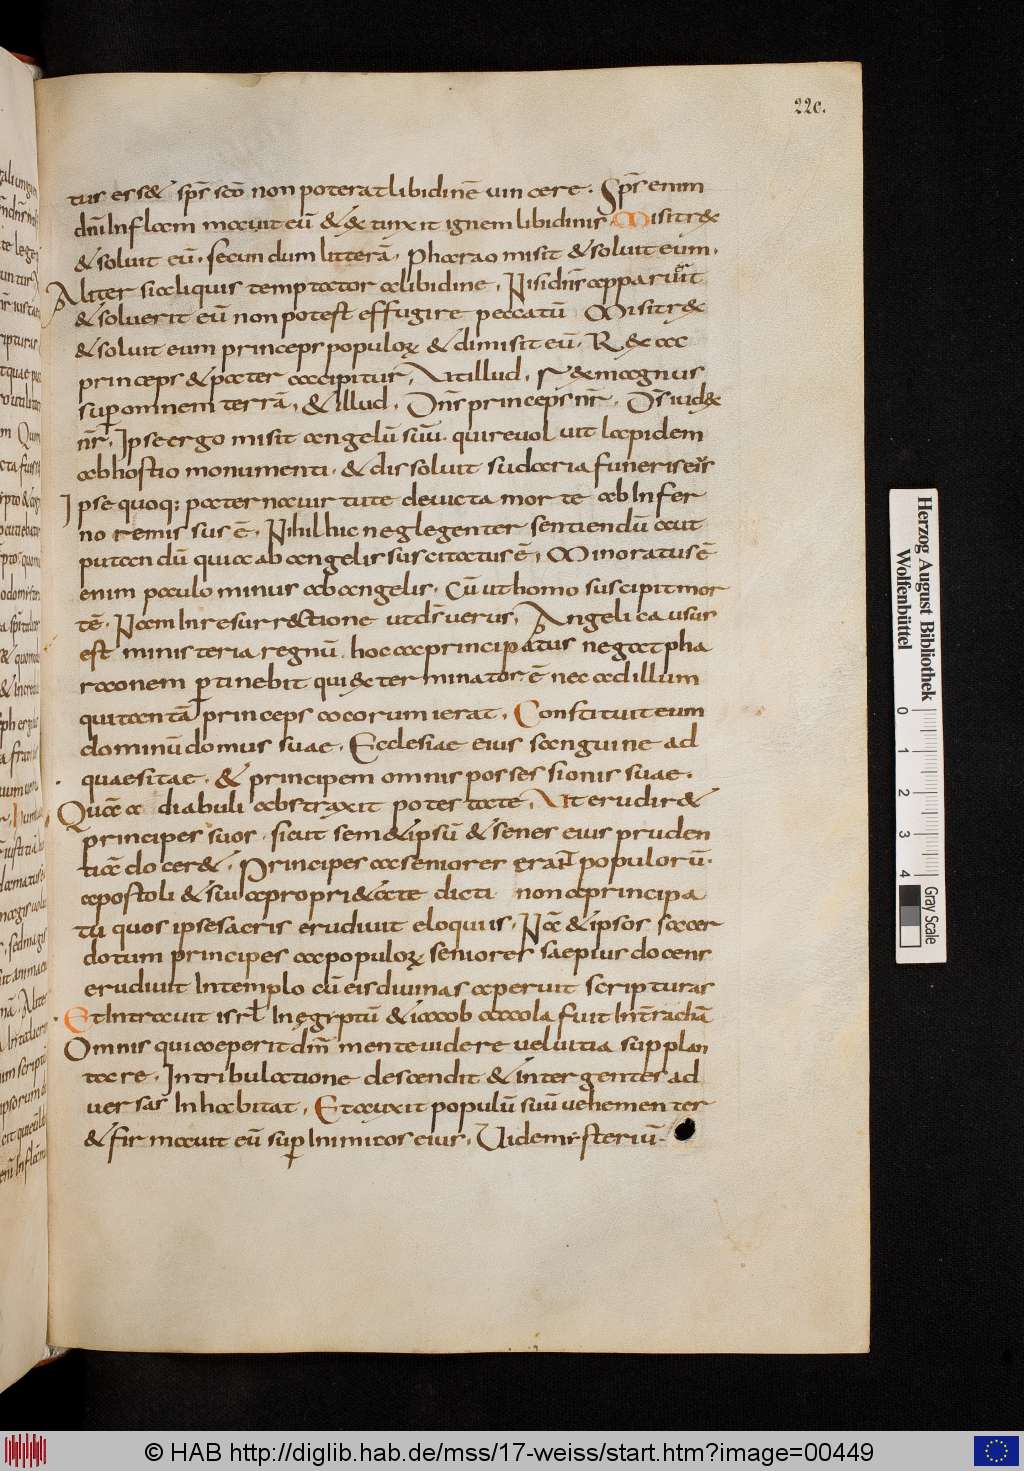 220.
tur esset sp̄s sc̄o non poterat libidinē vincere. Sp̄s enim
dn̄i Inflam mavit eū & extinxit ignem libidinis Misit rex
& soluit eū. secundum litterā. Pharao misit & soluit eum.
Aliter si aliquis temptatur a libidine. Nisi dn̄s apparuerit
& solverit eū non potest effugire peccatū Misit rex
& soluit eum princeps populoꝝ & dimisit eū. Rex ac
princeps & pater accipitur. Ut illud. rex magnus
super omnem terrā. & illud. Dn̄s princeps nr̄. Dn̄s iudex
nr̄. Ipse ergo misit angelū suū. qui revolvit lapidem
ab hostio monumenti. & dissoluit sudaria funeris eius
Ipse quoq; pater navir tute devicta morte ab Infer
no remissus ē. Nihil hic neglegenter sentiendū aut
putandū quia ab angelis suscitatus ē. Minoratus ē
enim paulo minus ab angelis. Cū ut homo suscipit mor
tē. Nam In resurrectione ut ds̄ verus. Angelica usus
est ministeria regnū. hoc ac principatus negat pha
raonem pertinebit qui exterminator ē nec ad illum
qui tantā princeps cocorum ierat. Constituit eum
dominū domus suae. Ecclesiae eius sanguine ad
quaesitae. & principem omnis possessionis suae.
Quā a diabuli abstraxit potestate. Ut erudiret
principes suos. sicut semetipsū & senes eius pruden
tiā doceret. Principes ac seniores erant populorū.
apostoli & sui a propri&ate dicti non a principa
tu quos ipse sacris erudivit eloquiis. Nā & ipsos sacer
dotum principes ac populoꝝ seniores saepius docens
erudivit In templo cū eis divinas aperuit scripturas
Et Intravit isrl̄ In egyptū & iacob accola fuit In terra chā
Omnis qui coeperit dn̄m mente videre vel vitia supplan
tare. In tribulatione descendit & inter gentes ad
versas Inhabitat. Et auxit populū suū vehementer
& firmavit eū super Inimicos eius. Vide mysteriū.
Herzog August Bibliothek
Wolfenbüttel
0 1 2 3 4
Gray Scale
© HAB http://diglib.hab.de/mss/17-weiss/start.htm?image=00449